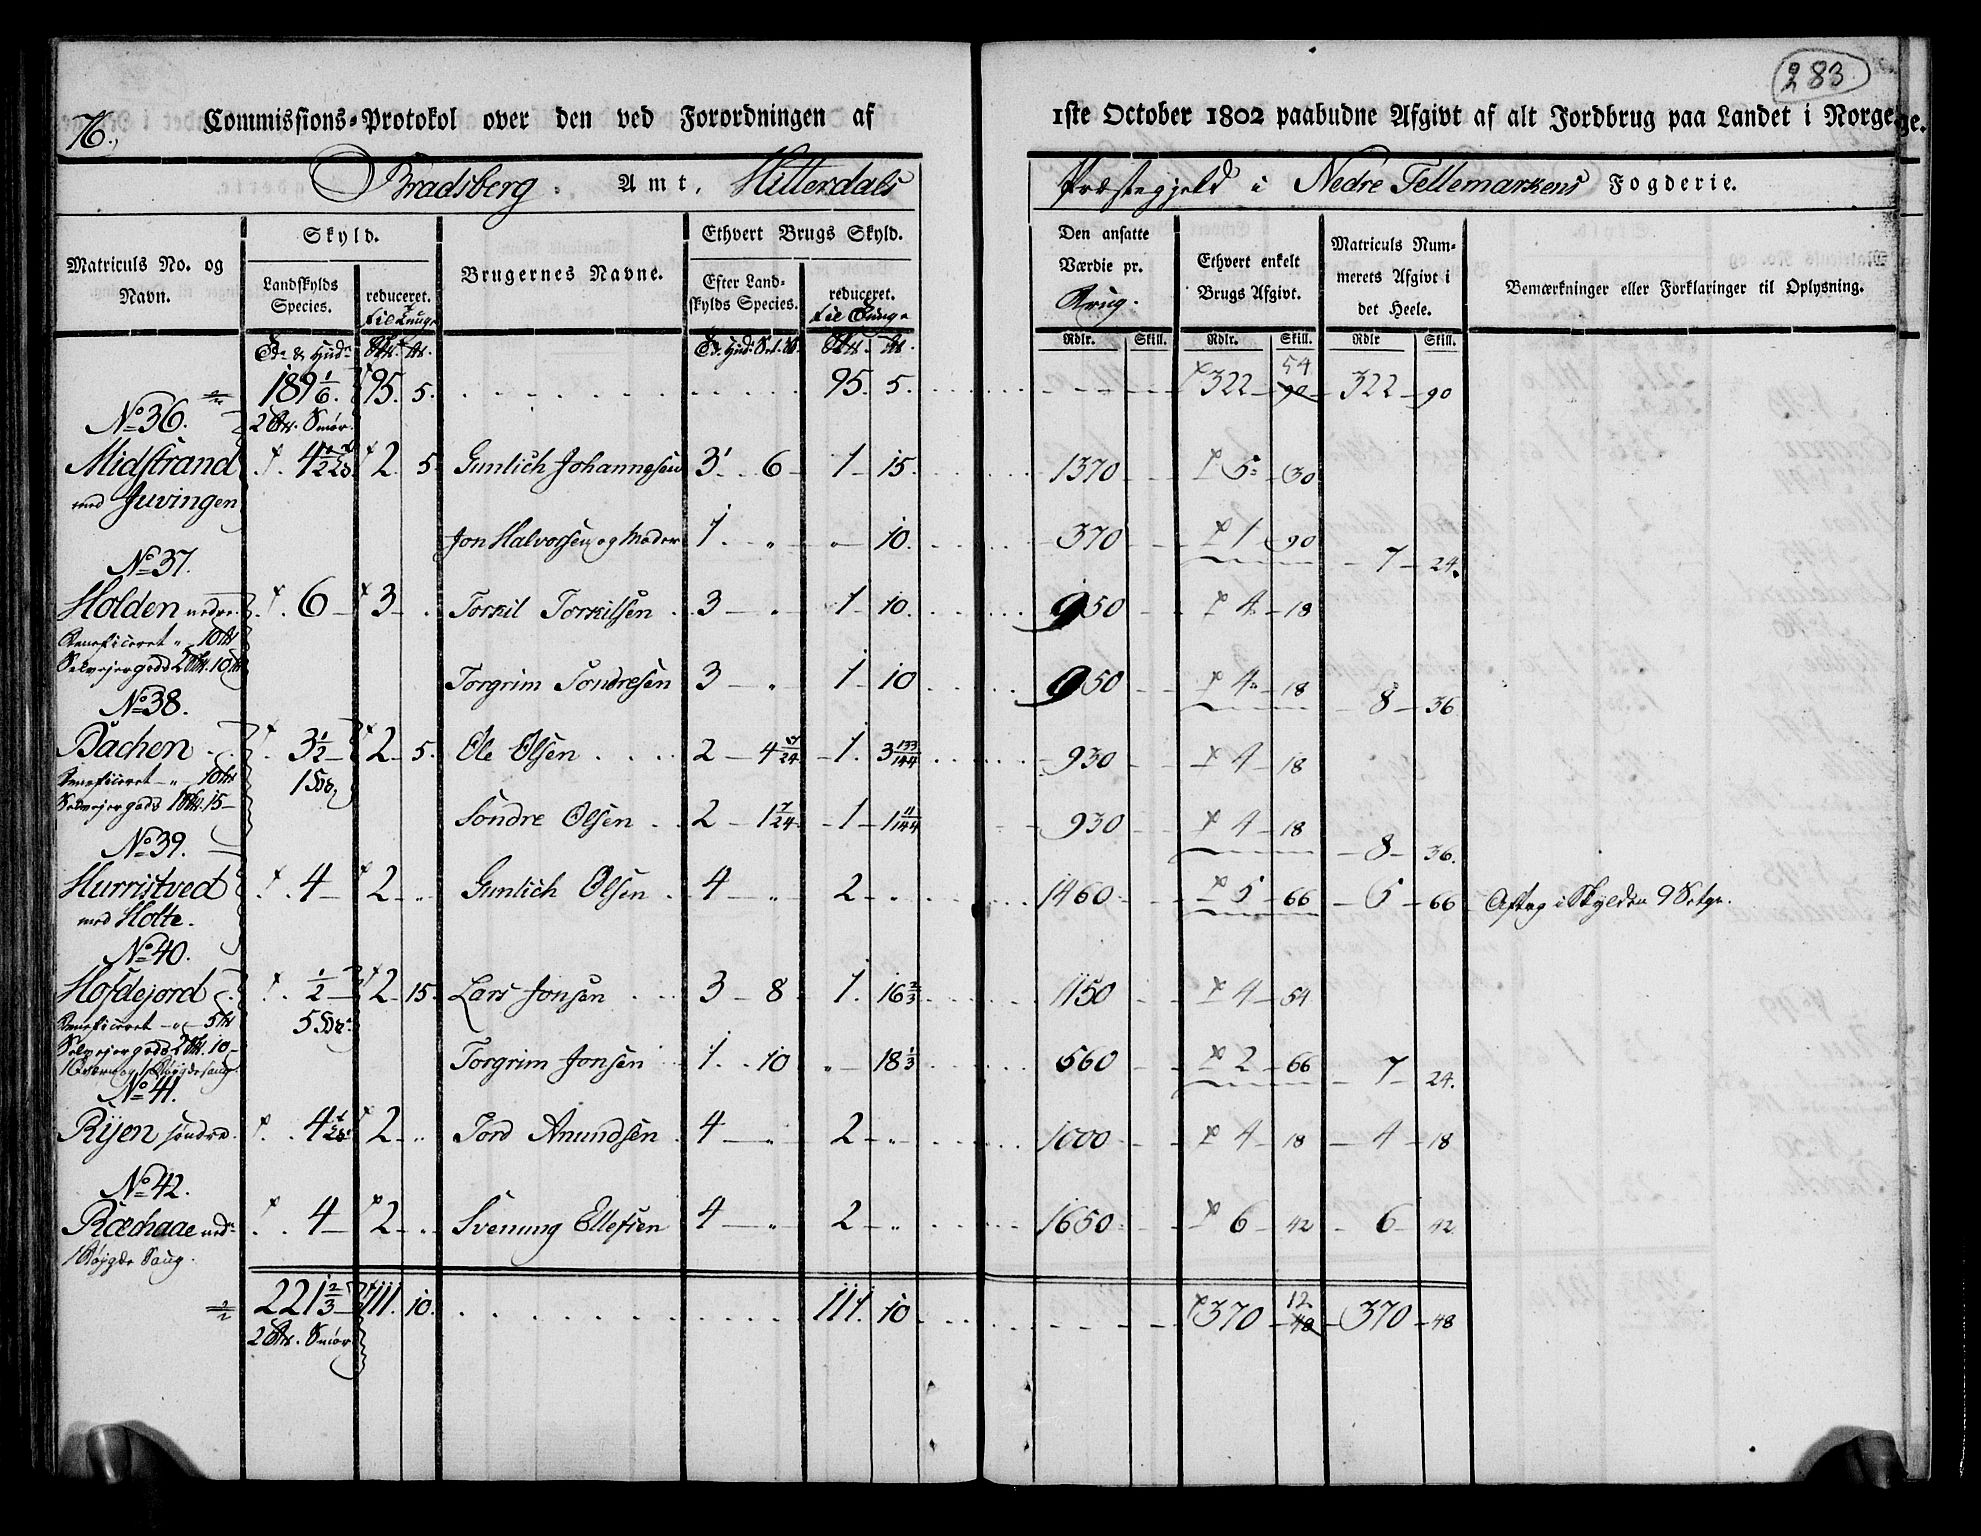 283
76.
Commissions-Protokol over den ved Forordningen af 1ste October 1802 paabudne Afgivt af alt Jordbrug paa Landet i Norge.
Bradsberg Amt, Hitterdals Præstegjeld i Nedre Tellemarkens Fogderie.
Matriculs No. og Navn. Skyld. Landskylds Species. reduceret. Brugernes Navne. Ethvert Brugs Skyld. Efter Landskylds Species. reduceret. Den ansatte Værdie pr. Brug. Ethvert enkelt Brugs Afgivt. Matriculs Nummerets Afgivt i det Heele. Bemærkninger eller Forklaringer til Oplysning.
Rdlr. Skill. Rdlr. Skill. Rdlr Skill.
189 1/6. 95. 5. 95. 5. 322 54 90 322 90
No 36. Smør.
Midstrand 2 5. Gunlich Johannesen 3 6 1 15. 1370 5 30
med Juvingen
Jon Halvorsen og Moder 1 " " 10. 370 1 90 7 24.
No 37.
Holden nedre 6 3 Torkil Torkilsen 3 " 1 10. 950 4 18
Beneficeret " 10
Selvejergods 2 10
Torgrim Sondresen 3 " 1 10 950 4 18 8 36
No 38.
Bachen 3 1/2 2 5. Ole Olsen 2 4 1. 3 133/144 930 4 18
Beneficeret " 10
Selvejergods 1 15
Sondre Olsen 2 1 7/24 1 1 11/144 930 4 18 8 36.
No 39.
Hurristved 4 2 " Gunlich Olsen 4 " 2 " 1460 5 66 5 66 Aftag i Skylden 9 Setge.
med Holte.
No 40.
Hofdejord 1/2 2 15. Lars Jonsen 3 8 1. 16 2/3 1150 4 54
Beneficeret " 5
Selvejergods 2 10
Torgrim Jonsen 1. 10 " 18 1/3 560 2 66 7 24.
No 41.
Rijen søndre 2 " Tord Anundsen 4 " 2 " 1000 4 18 4 18
No 42.
Ræchaae ned 4 2 Svenung Ellefsen 4 " 2 " 1650 6 42 6 42
1 Bøygde Saug.
221 2/3 111. 10. 111. 10 370 12. 48 370 48
Smør